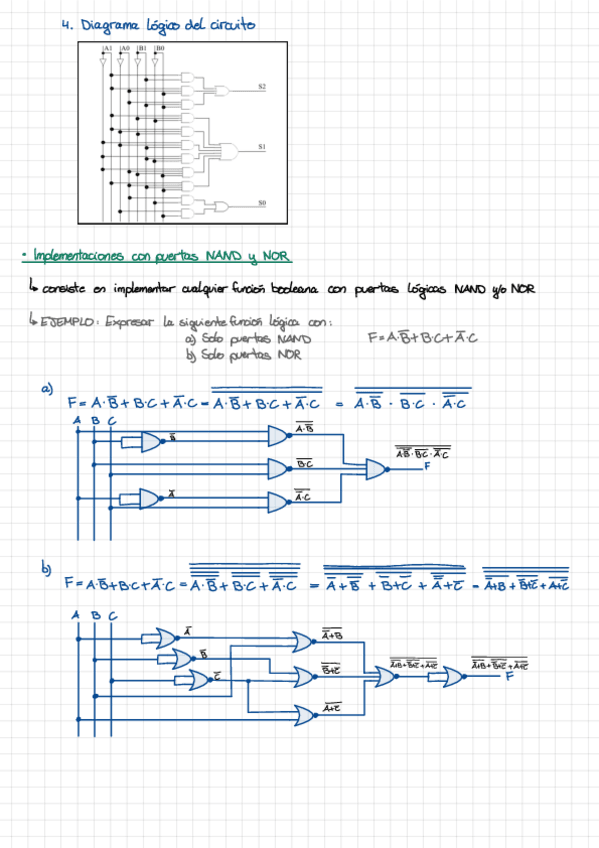 4. Diagrama lógico del circuito
A1 A0 B1 B0
S2
S1
S0
• Implementaciones con puertas NAND y NOR
↳ consiste en implementar cualquier función booleana con puertas lógicas NAND y/o NOR
↳ EJEMPLO: Expresar la siguiente función lógica con: 
a) Solo puertas NAND F = A·B̅ + B·C + A̅·C
b) Solo puertas NOR
a)
F = A·B̅ + B·C + A̅·C = A·B̅ + B·C + A̅·C = A·B̅ · B·C · A̅·C
A B C
B̅
A·B̅
B·C
A·B̅·B·C·A̅·C
F
A̅
A̅·C
b)
F = A·B̅ + B·C + A̅·C = A·B̅ + B·C + A̅·C = A̅+B̿ + B̅+C̅ + A̿+C̅ = A̅+B + B̅+C̅ + A+C̅
A B C
A̅
A̅+B
B̅
B̅+C̅
A̅+B + B̅+C̅ + A+C̅
A̅+B + B̅+C̅ + A+C̅
F
C̅
A+C̅